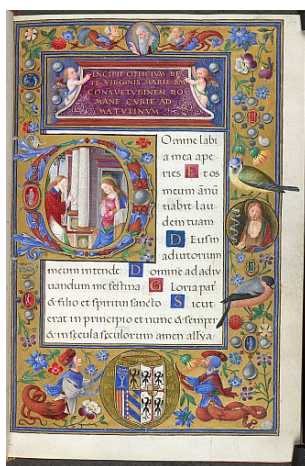 INCIPIT OFFICIVM BE
TE VIRGINIS MARIE
CONSVETVDINEM RO
MANE CVRIE AD
MATVTINVM
Omine labi
a mea ape
ries Et os
meum ānū
tiabit lau
dem tuam
Deus in
adiutorium
meum intende Domine ad adiu
uandum me festina Gloria pat
& filio et spiritui sancto Sicut
erat in principio et nunc & semper
& in secula seculorum amen allħa